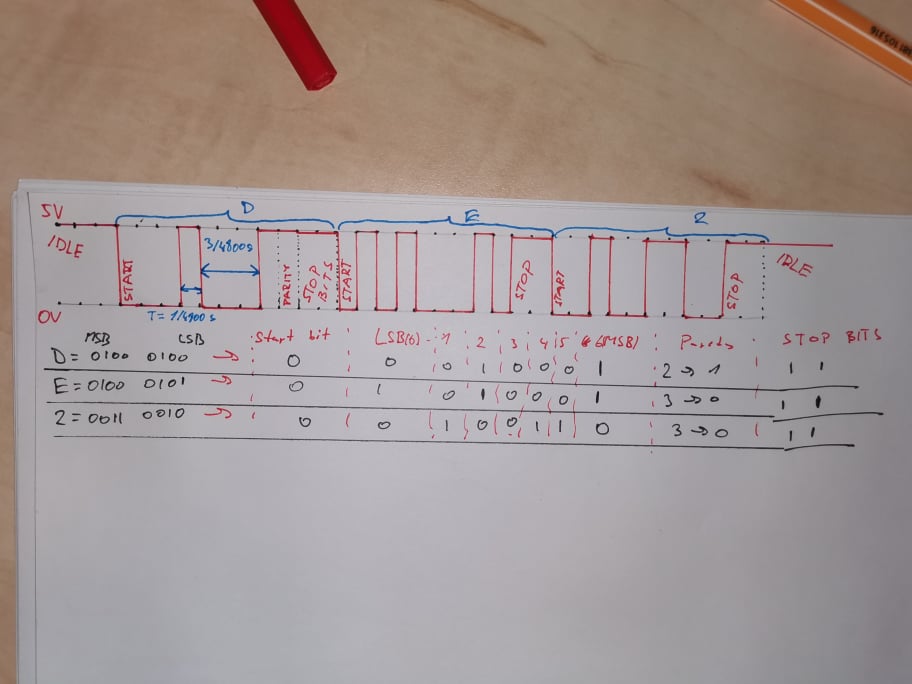 D E 2
5V
IDLE 3/4800s IDLE
START PARITY STOP BITS START STOP START STOP
0V T = 1/4900 s
MSB LSB Start bit LSB(0) 1 2 3 4 5 6(MSB) STOP BITS
D = 0100 0100 → 0 0 0 1 0 0 0 1 2 → 1 1 1
E = 0100 0101 → 0 1 0 1 0 0 0 1 3 → 0 1 1
2 = 0011 0010 → 0 0 1 0 0 1 1 0 3 → 0 1 1